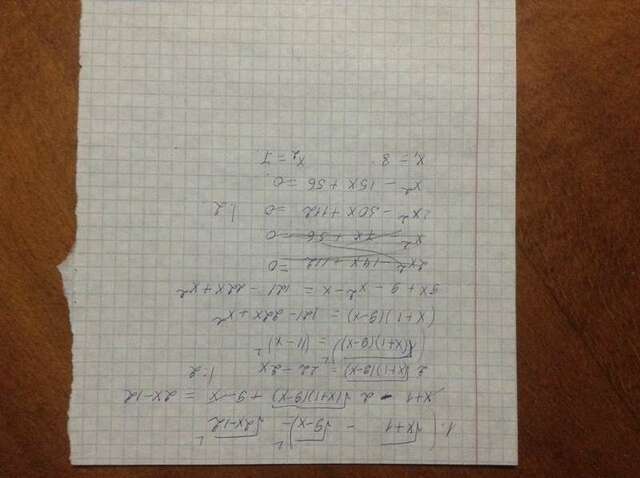 1. (√x+1 - √9-x)² = √2x-12²
x+1 - 2√(x+1)(9-x) + 9-x = 2x-12
2√(x+1)(9-x) = 22-2x |:2
(√(x+1)(9-x))² = (11-x)²
(x+1)(9-x) = 121-22x+x²
9x+9-x²-x = 121-22x+x²
2x²-14x+112=0
x²-7x+56=0
2x²-30x+112=0 |:2
x²-15x+56=0
x₁=8 x₂=7